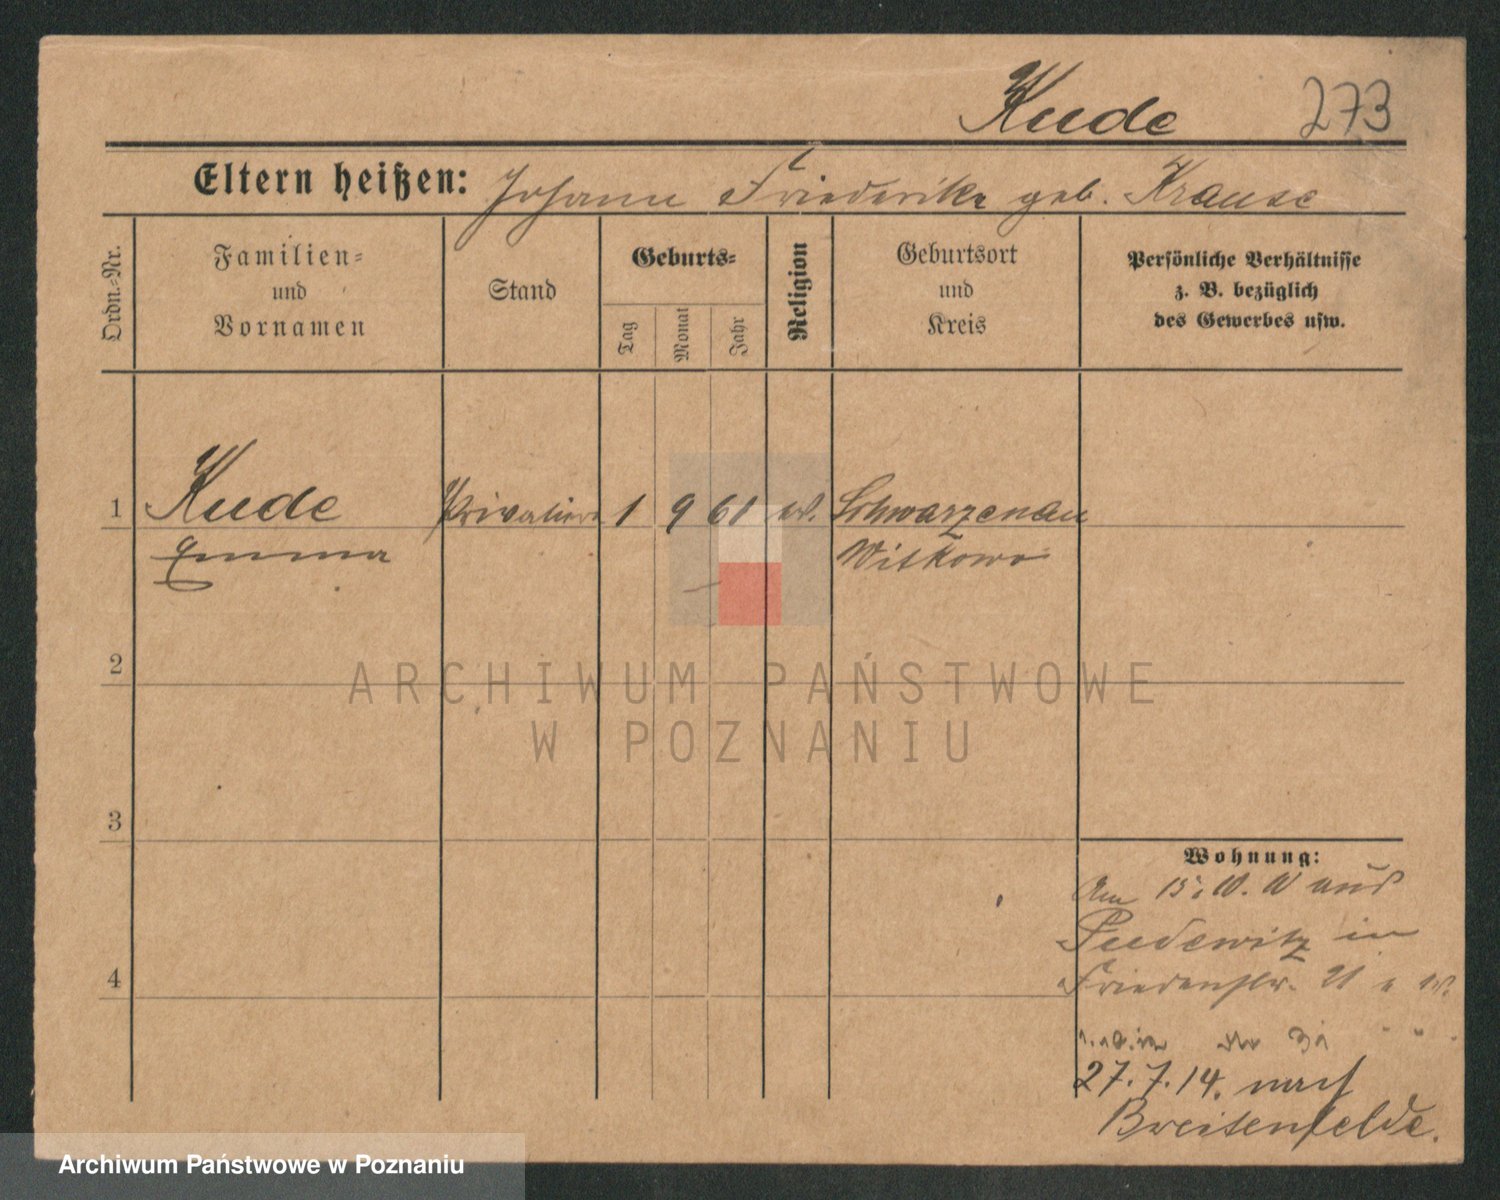 Kude 273
Eltern heißen: Johann Friederike geb. Krause
Ordn.-Nr.
Familien-
und
Vornamen
Stand
Geburts-
Tag
Monat
Jahr
Religion
Geburtsort
und
Kreis
Persönliche Verhältnisse
z. B. bezüglich
des Gewerbes usw.
1 Kude Privatiere 1 9 61 Schwarzenau
Emma Witkowo
2
3
4
Wohnung:
Am 15. 10. 10 aus
Pudewitz in
Friedenstr.
27.7.14. nach
Breitenfelde.
ARCHIWUM PAŃSTWOWE
W POZNANIU
Archiwum Państwowe w Poznaniu